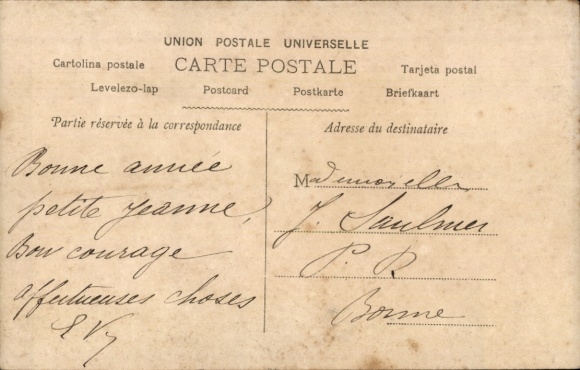 UNION POSTALE UNIVERSELLE
Cartolina postale CARTE POSTALE Tarjeta postal
Levelezö-lap Postcard Postkarte Briefkaart
Partie réservée à la correspondance
Bonne année
petite Jeanne,
Bon courage
affectueuses choses
Adresse du destinataire
Mademoiselle
J. Saulnier
P. R.